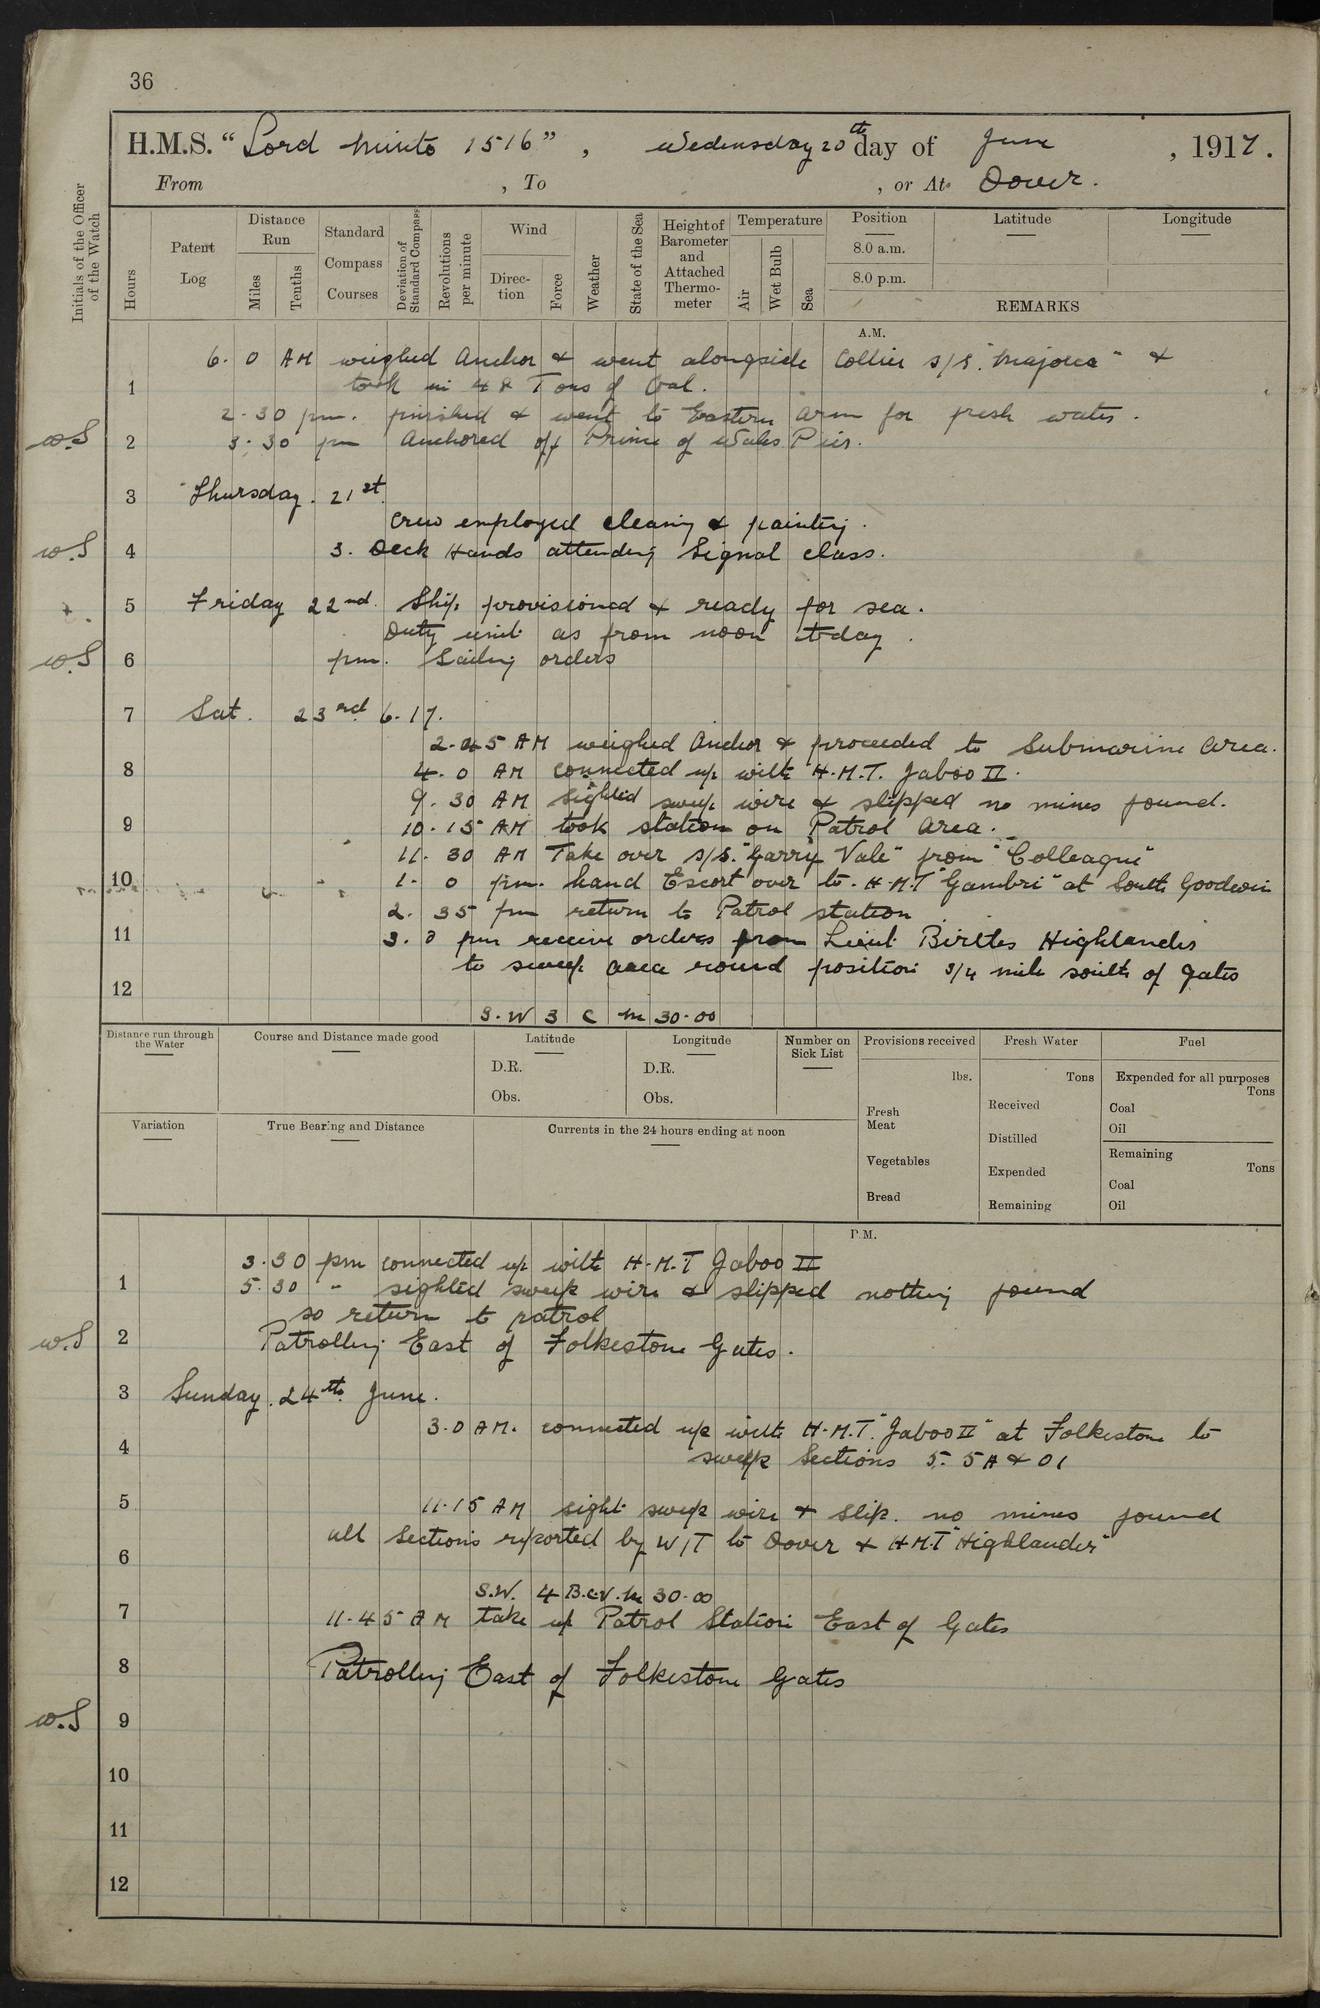 36
H.M.S. "Lord Minto 1516", Wednesday 20th day of June, 1917.
From , To , or At Dover.
Initials of the Officer of the Watch
Hours
Patent Log
Distance Run
Miles
Tenths
Standard Compass Courses
Deviation of Standard Compass
Revolutions per minute
Wind
Direction
Force
Weather
State of the Sea
Height of Barometer and Attached Thermometer
Temperature
Air
Wet Bulb
Sea
Position
8.0 a.m.
8.0 p.m.
Latitude
Longitude
REMARKS
A.M.
6. 0 AM weighed Anchor & went alongside Collier s/s. "Majorca" &
1 took in 48 Tons of Coal.
2-30 pm. finished & went to Eastern arm for fresh water.
w.S 2 3-30 pm Anchored off Prince of Wales Pier.
3 Thursday. 21st.
Crew employed cleaning & painting.
w.S 4 3. Deck Hands attending Signal class.
5 Friday 22nd. Ship provisioned & ready for sea.
Duty unit as from noon today.
w.S 6 pm. Sailing orders
7 Sat. 23rd 6-17.
2-45 AM weighed Anchor & proceeded to Submarine area.
8 4. 0 AM connected up with H.M.T. Jaboo II.
9. 30 AM sighted sweep wire & slipped no mines found.
9 10-15 AM took station on Patrol area.
11. 30 AM Take over s/s. "Garry Vale" from "Colleague"
10 1. 0 pm. hand Escort over to H.M.T "Gambri" at South Goodwin
2. 35 pm return to Patrol station
11 3. 0 pm receive orders from Lieut Birltes Highlander
to sweep area round position 3/4 mile south of gates
12
S.W 3 C M 30-00
Distance run through the Water
Course and Distance made good
Latitude
D.R.
Obs.
Longitude
D.R.
Obs.
Number on Sick List
Provisions received
lbs.
Fresh Meat
Vegetables
Bread
Fresh Water
Tons
Received
Distilled
Expended
Remaining
Fuel
Expended for all purposes
Tons
Coal
Oil
Remaining
Tons
Coal
Oil
Variation
True Bearing and Distance
Currents in the 24 hours ending at noon
P.M.
3.30 pm connected up with H.M.T Jaboo II
1 5.30 " sighted sweep wire & slipped nothing found
so return to patrol
w.S 2 Patrolling East of Folkestone Gates.
3 Sunday. 24th June.
3.0 AM. connected up with H.M.T. "Jaboo II" at Folkestone to
4 sweep Sections 5. 5A & 01
5 11.15 AM sight sweep wire & slip. no mines found
all Sections reported by W/T to Dover & H.M.T "Highlander"
6
S.W. 4 B.C.V. M 30-00
7 11-45 AM take up Patrol Station East of Gates
8 Patrolling East of Folkestone Gates
w.S 9
10
11
12